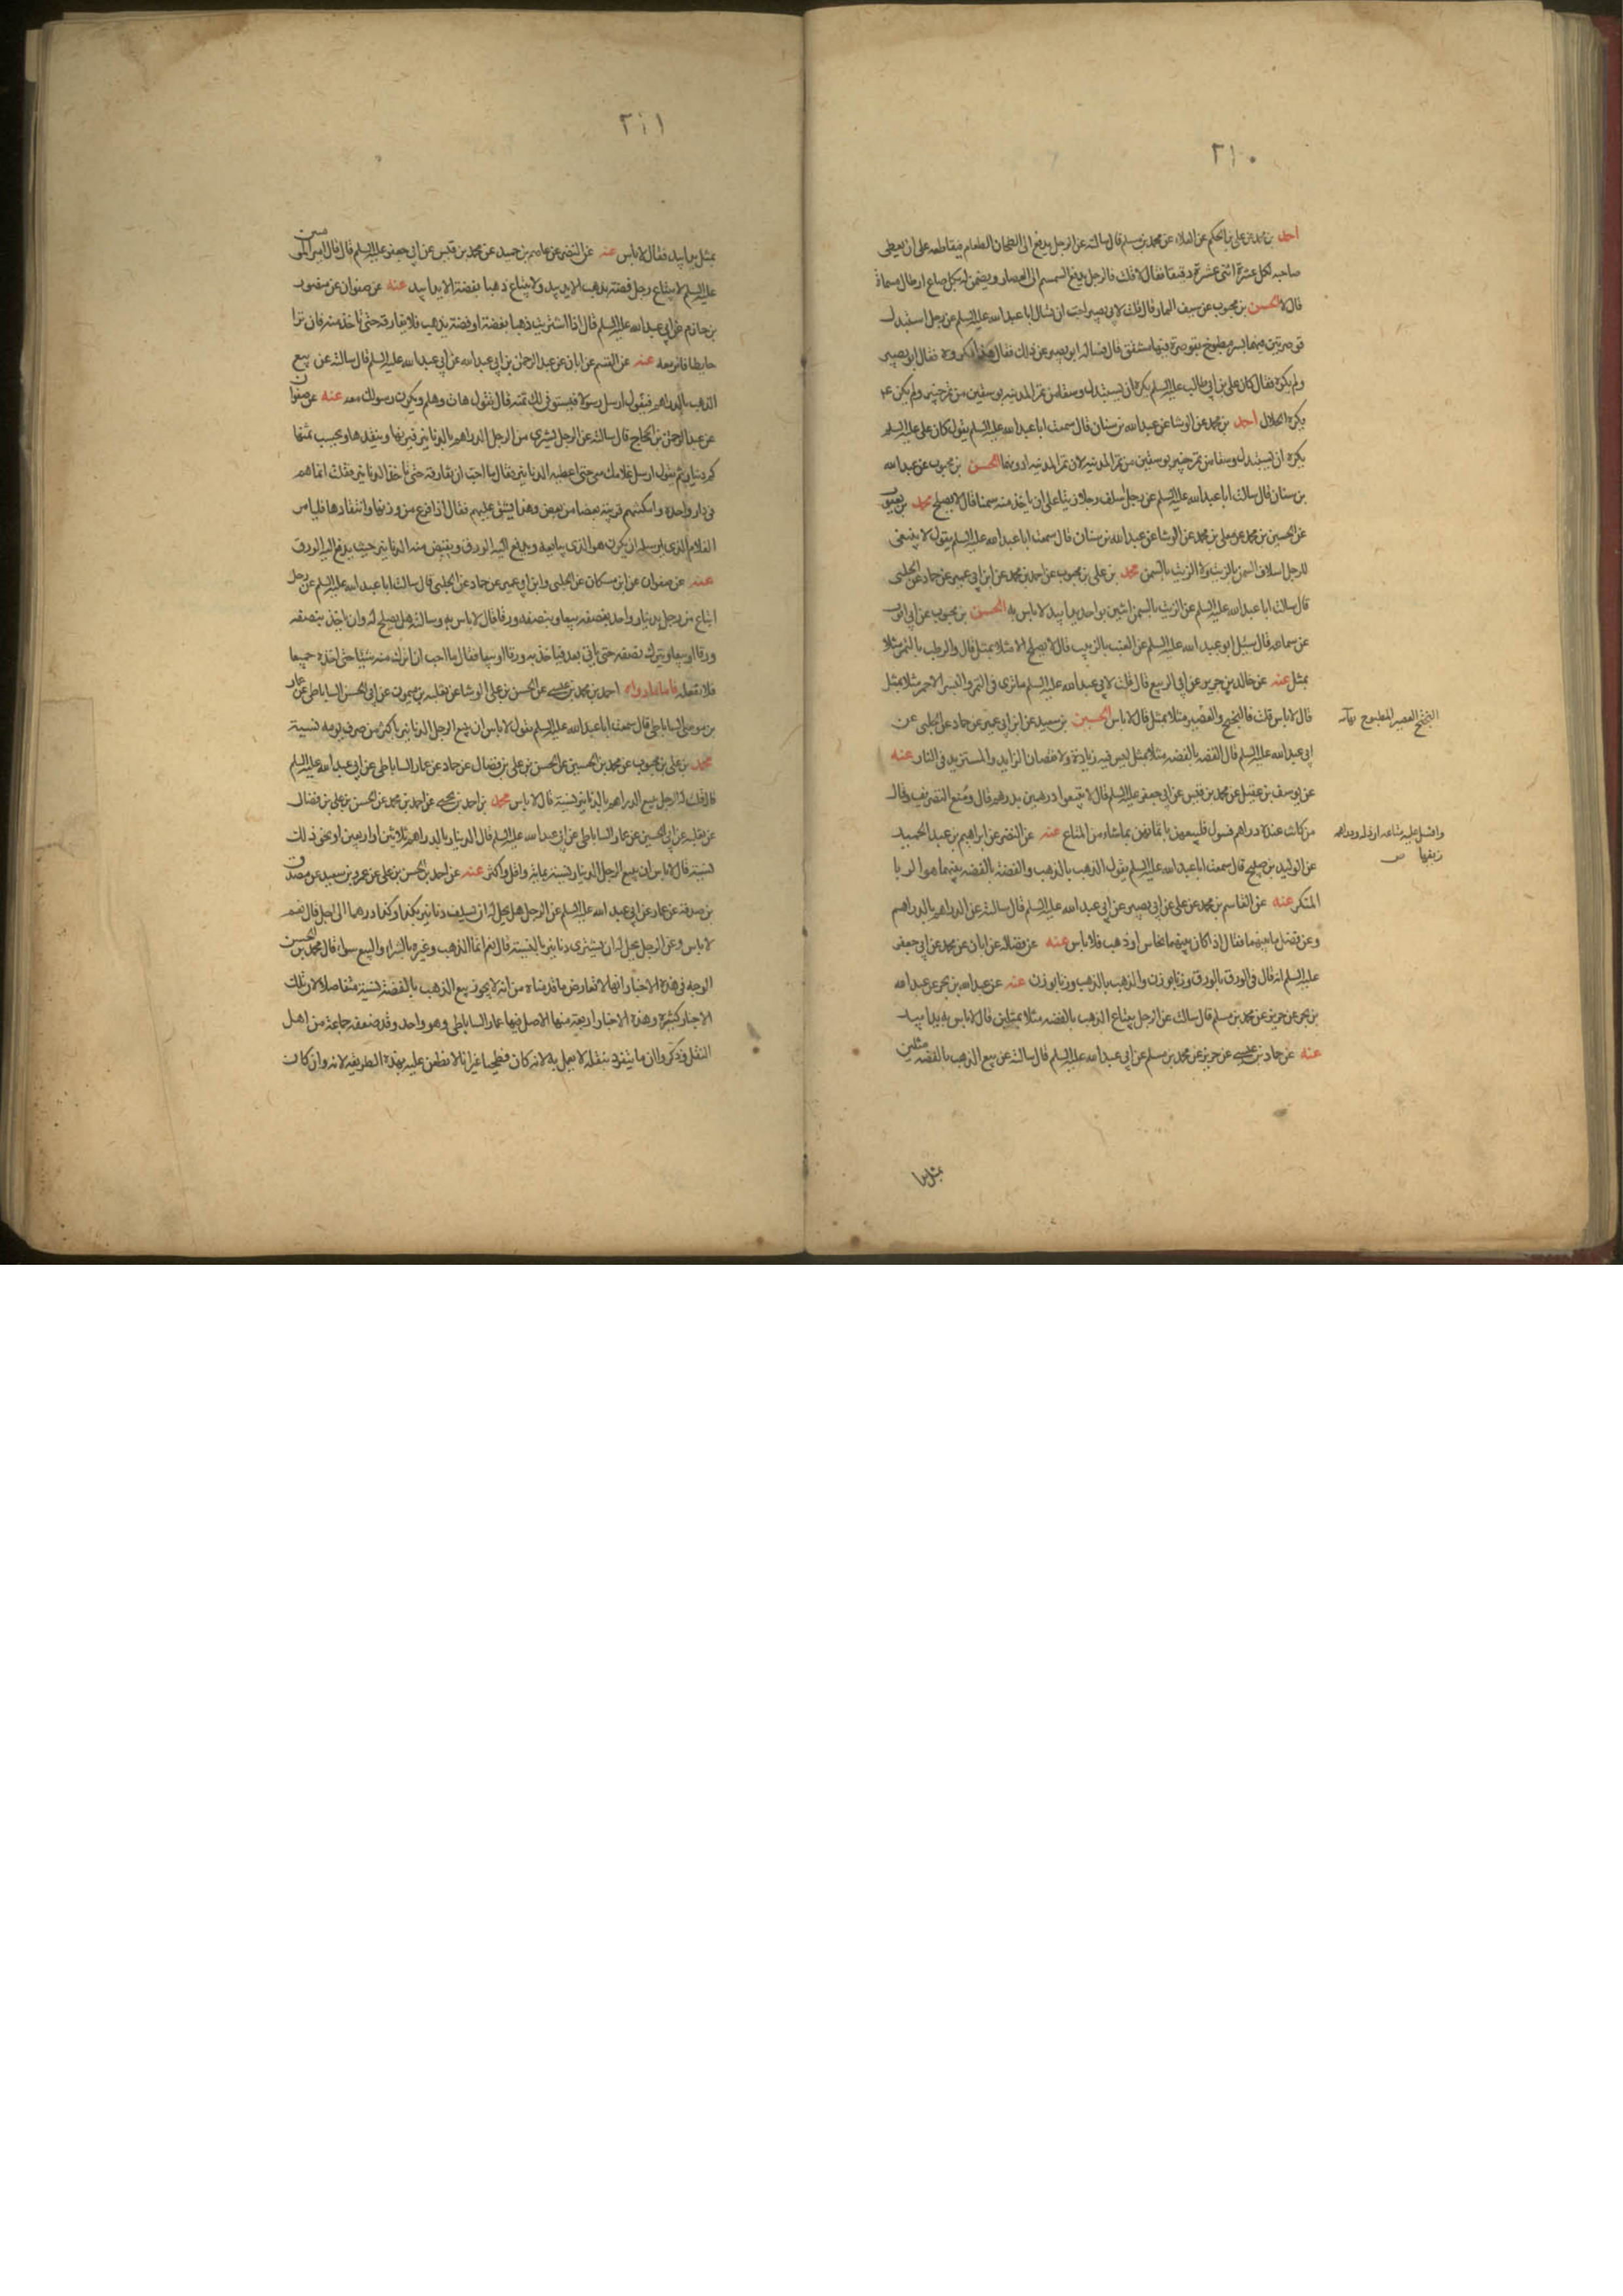 ٣١٠
احمد بن محمد عن علي بن الحكم عن العلاء عن محمد بن مسلم قال سالته عن الرجل يدفع الى الطحان الطعام فيقاطعه على ان يعطى
صاحبه لكل عشرة اثنى عشرة دقيقا فقال لا قلت فالرجل يدفع السمسم الى العصار ويضمن له بكل صاع ارطال مسماة
قال لا الحسن بن محبوب عن سيف التمار قال قلت لابي بصير احب ان تسال ابا عبد الله عليه السلم عن رجل استبدل
قوصرتين فيهما بسر مطبوخ بقوصرة فيها مشقق قال فساله ابو بصير عن ذلك فقال هذا مكروه فقال ابو بصير
ولم يكره فقال كان علي بن ابي طالب عليه السلم يكره ان يستبدل وسقا من تمر المدينه بوسقين من تمر خيبر ولم يكن ع
يكره الحلال احمد بن محمد عن الوشا عن عبد الله بن سنان قال سمعت ابا عبد الله عليه السلم يقول كان علي عليه السلم
يكره ان يستبدل وسقا من تمر خيبر بوسقين من تمر المدينه لان تمر المدينه ادونها الحسن بن محبوب عن عبد الله
بن سنان قال سالت ابا عبد الله عليه السلم عن رجل اسلف رجلا زيتا على ان ياخذ منه سمنا قال لا يصلح محمد بن يعقوب
عن الحسين بن محمد عن معلى بن محمد عن الوشا عن عبد الله بن سنان قال سمعت ابا عبد الله عليه السلم يقول لا ينبغي
للرجل اسلاف السمن بالزيت ولا الزيت بالسمن محمد بن علي بن محبوب عن احمد بن محمد عن ابن ابي عمير عن حماد عن الحلبي
قال سالت ابا عبد الله عليه السلم عن الزيت بالسمن اثنين بواحد يدا بيد لا باس به الحسن بن محبوب عن ابي ايوب
عن سماعه قال سئل ابو عبد الله عليه السلم عن العنب بالزبيب قال لا يصلح الا مثلا بمثل قال والرطب بالتمر مثلا
بمثل عنه عن خالد بن جرير عن ابي الربيع قال قلت لابي عبد الله عليه السلم ما ترى في التمر والبسر الاحمر مثلا بمثل
قال لا باس قلت فالبختج والعصير مثلا بمثل قال لا باس الحسين بن سعيد عن ابن ابي عمير عن حماد عن الحلبي عن
البختج العصير المطبوخ
ابي عبد الله عليه السلم قال الفضه بالفضه مثلا بمثل ليس فيه زيادة ولا نقصان الزايد والمستزيد في النار عنه
عن يوسف بن عقيل عن محمد بن قيس عن ابي جعفر عليه السلم قال لا تبيعوا درهمين بدرهم قال ومنع التصريف وقال
من كانت عنده دراهم فسول فليبعهن باثمانهن بما شاء من المتاع عنه عن النضر عن ابراهيم بن عبد الحميد
زيفها
عن الوليد بن صبيح قال سمعت ابا عبد الله عليه السلم يقول الذهب بالذهب والفضة بالفضه بينهما هو الربا
المنكر عنه عن القاسم بن محمد عن علي عن ابي بصير عن ابي عبد الله عليه السلم قال سالته عن الدراهم بالدراهم
وعن فضل ما بينهما فقال اذا كان بينهما نحاس او ذهب فلا باس عنه عن فضاله عن ابان عن محمد عن ابي جعفر
عليه السلم انه قال في الورق بالورق وزنا بوزن والذهب بالذهب وزنا بوزن عنه عن عبد الله بن بحر عن عبد الله
بن عن حريز عن محمد بن مسلم قال سالته عن الرجل يبتاع الذهب بالفضه مثلا بمثلين قال لا باس به يدا بيد
عنه عن حماد بن عيسى عن حريز عن محمد بن مسلم عن ابي عبد الله عليه السلم قال سالته عن بيع الذهب بالفضه مثلين
بمثل يدا
٣١١
بمثل يدا بيد فقال لا باس عنه عن النضر عن عاصم بن حميد عن محمد بن قيس عن ابي جعفر عليه السلم قال قال امير المومنين
عليه السلم لا يبتاع رجل فضة بذهب الا يدا بيد ولا يبتاع ذهبا بفضة الا يدا بيد عنه عن صفوان عن منصور
بن حازم عن ابي عبد الله عليه السلم قال اذا اشتريت ذهبا بفضة او فضة بذهب فلا تفارقه حتى تاخذ منه فان نزا
حايطا فانز معه عنه عن القسم عن ابان عن عبد الرحمن بن ابي عبد الله عن ابي عبد الله عليه السلم قال سالته عن بيع
الذهب بالدراهم فيقول ارسل رسولا فيستوفى لك ثمنه قال فيقول هات وهلم ويكون رسولك معه عنه عن صفوان
عن عبد الرحمن بن الحجاج قال سالته عن الرجل يشترى من الرجل الدراهم بالدنانير فيزنها وينقدها ويحسب ثمنها
كم دينار ثم يقول ارسل غلامك معي حتى اعطيه الدنانير فقال ما احب ان يفارقه حتى ياخذ الدنانير فقلت انما هم
في دار واحدة وامكنتهم قريبة بعضها من بعض وهذا يشق عليهم فقال اذا فرغ من وزنها وانتقادها فليامر
الغلام الذي يرسله ان يكون هو الذي يبايعه ويدفع اليه الورق ويقبض منه الدنانير حيث يدفع اليه الورق
عنه عن صفوان عن ابن مسكان عن الحلبي وابن ابي عمير عن حماد عن الحلبي قال سالت ابا عبد الله عليه السلم عن رجل
ابتاع من رجل بدينار واخذ بنصفه بيعا وبنصفه ورقا قال لا باس به وسالته هل يصلح له ان ياخذ بنصفه
ورقا او بيعا ويترك نصفه حتى ياتي بعد فياخذ به ورقا او بيعا فقال ما احب ان اترك منه شيئا حتى اخذه جميعا
فلا تفعله فاما ما رواه احمد بن محمد بن عيسى عن الحسن بن علي الوشا عن ثعلبه بن ميمون عن ابي الحسن الساباطي عن عمار
بن موسى الساباطي قال سمعت ابا عبد الله عليه السلم يقول لا باس ان يبيع الرجل الدنانير باكثر من صرف يومه نسية
محمد بن علي بن محبوب عن محمد بن الحسين عن الحسن بن علي بن فضال عن حماد عن عمار الساباطي عن ابي عبد الله عليه السلم
قال قلت له الرجل يبيع الدراهم بالدنانير نسية قال لا باس محمد بن احمد بن يحيى عن احمد بن محمد عن الحسن بن علي بن فضال
عن ثعلبه عن ابي الحسين عن عمار الساباطي عن ابي عبد الله عليه السلم قال الدينار بالدراهم بثلاثين او اربعين او نحو ذلك
نسية قال لا باس ان يبيع الرجل الدينار نسية بماية واقل واكثر عنه عن احمد بن الحسن بن علي عن عمرو بن سعيد عن مصدق
بن صدقه عن عمار عن ابي عبد الله عليه السلم عن الرجل هل يحل له ان يسلف دنانير بكذا وكذا درهما الى اجل قال نعم
لا باس وعن الرجل يحل له ان يشترى دنانير بالنسية قال نعم انما الذهب وغيره بالشراء والبيع سواء قال محمد بن الحسن
الوجه في هذه الاخبار انها لا تعارض ما قدمناه من انه لا يجوز بيع الذهب بالفضة نسية متفاضلا لان تلك
الاخبار كثيرة وهذه الاخبار اربعة منها الاصل فيها عمار الساباطي وهو واحد وقد ضعفه جماعة من اهل
النقل وذكروا ان ما يتفرد بنقله لا يعمل به لانه كان فطحيا غير انا لا نطعن عليه بهذه الطريقه لانه وان كان